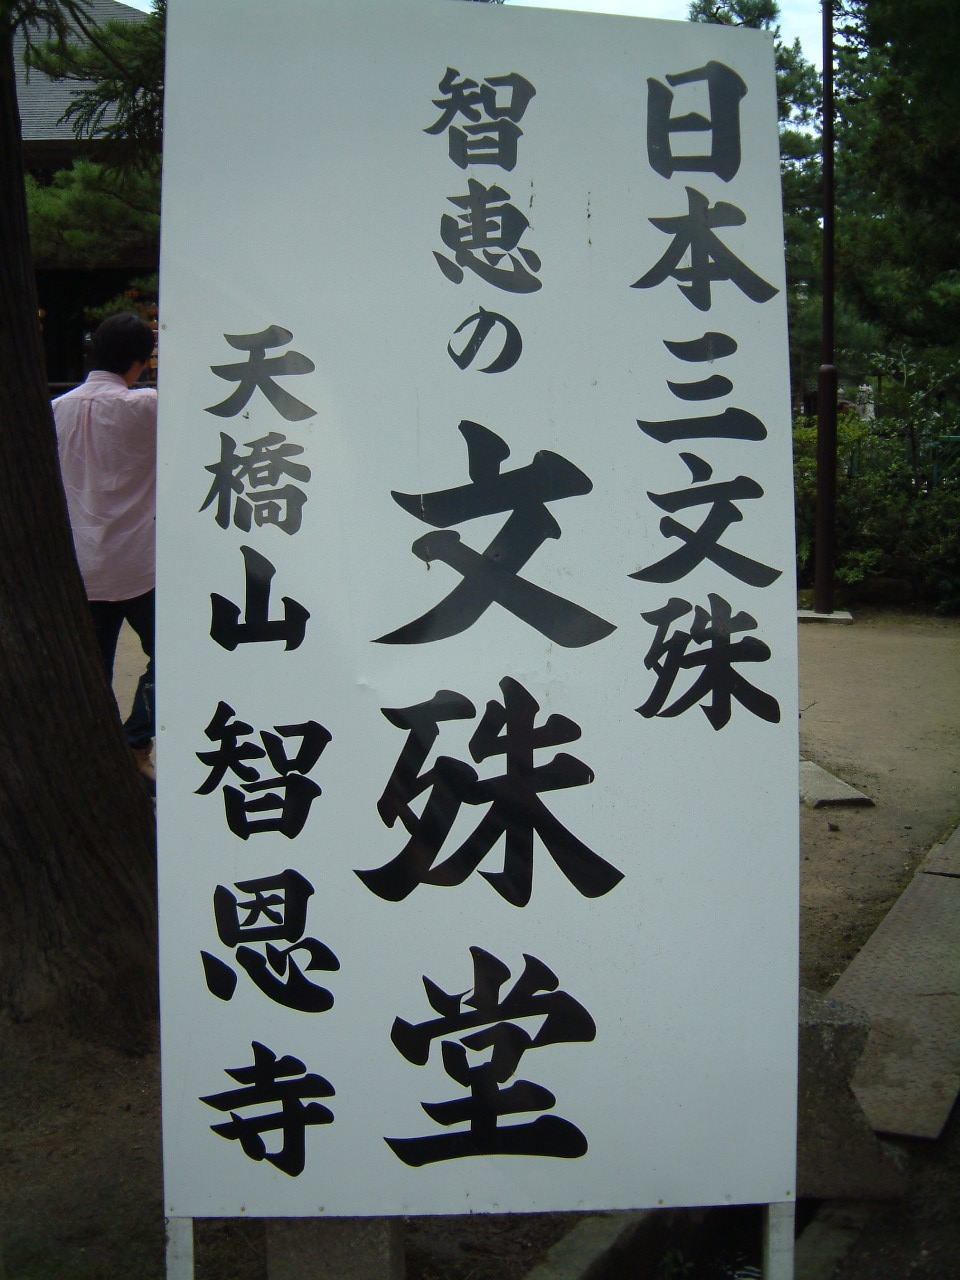 日本三文殊
智恵の文殊堂
天橋山智恩寺